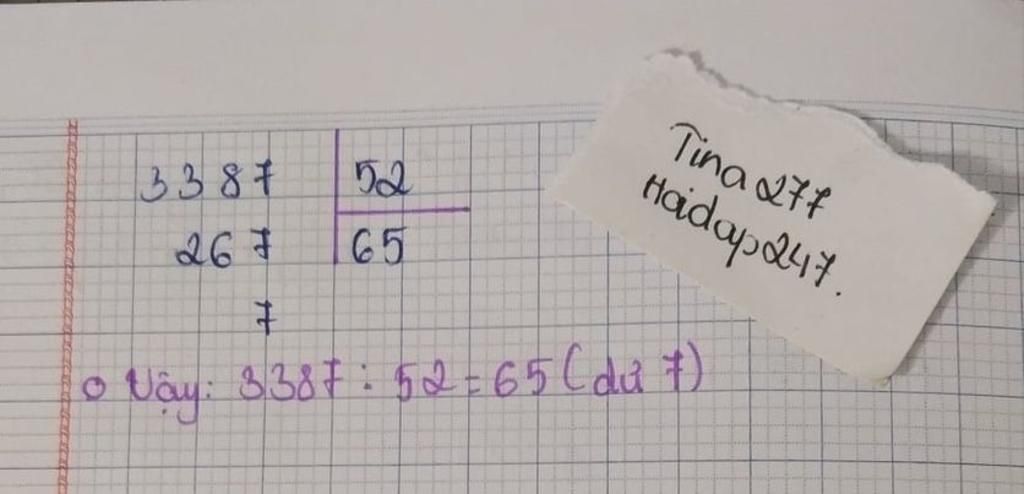 3387 | 52
267 | 65
7
Vậy: 3387 : 52 = 65 (dư 7)
Tina277
Hoidap247.